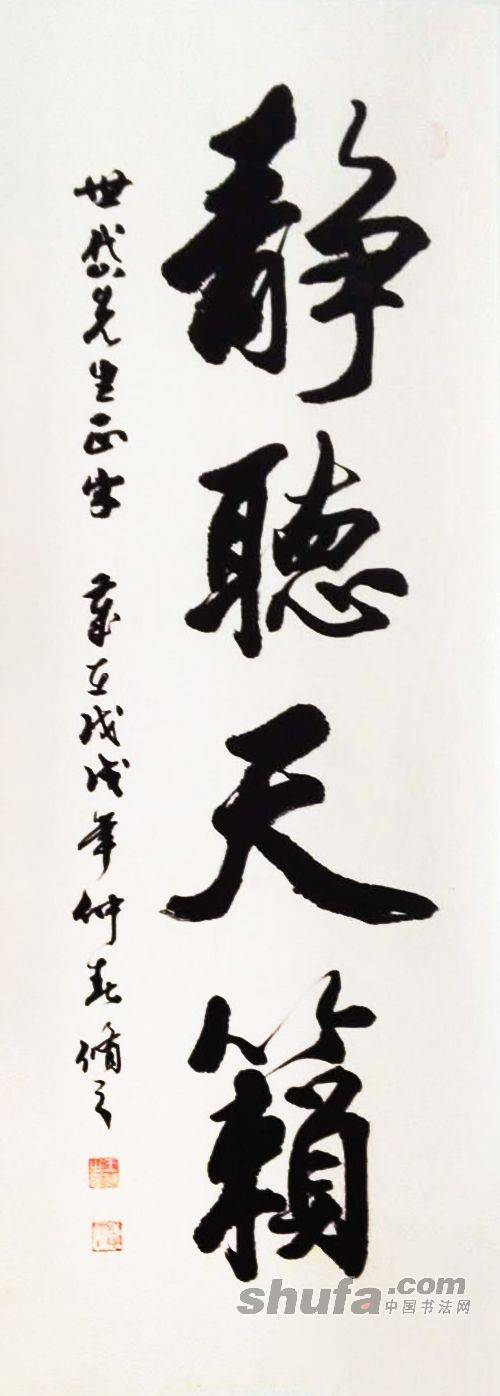 靜聽天籟
世岱先生正字 歲在戊戌年仲春脩之
shufa.com
中国书法网